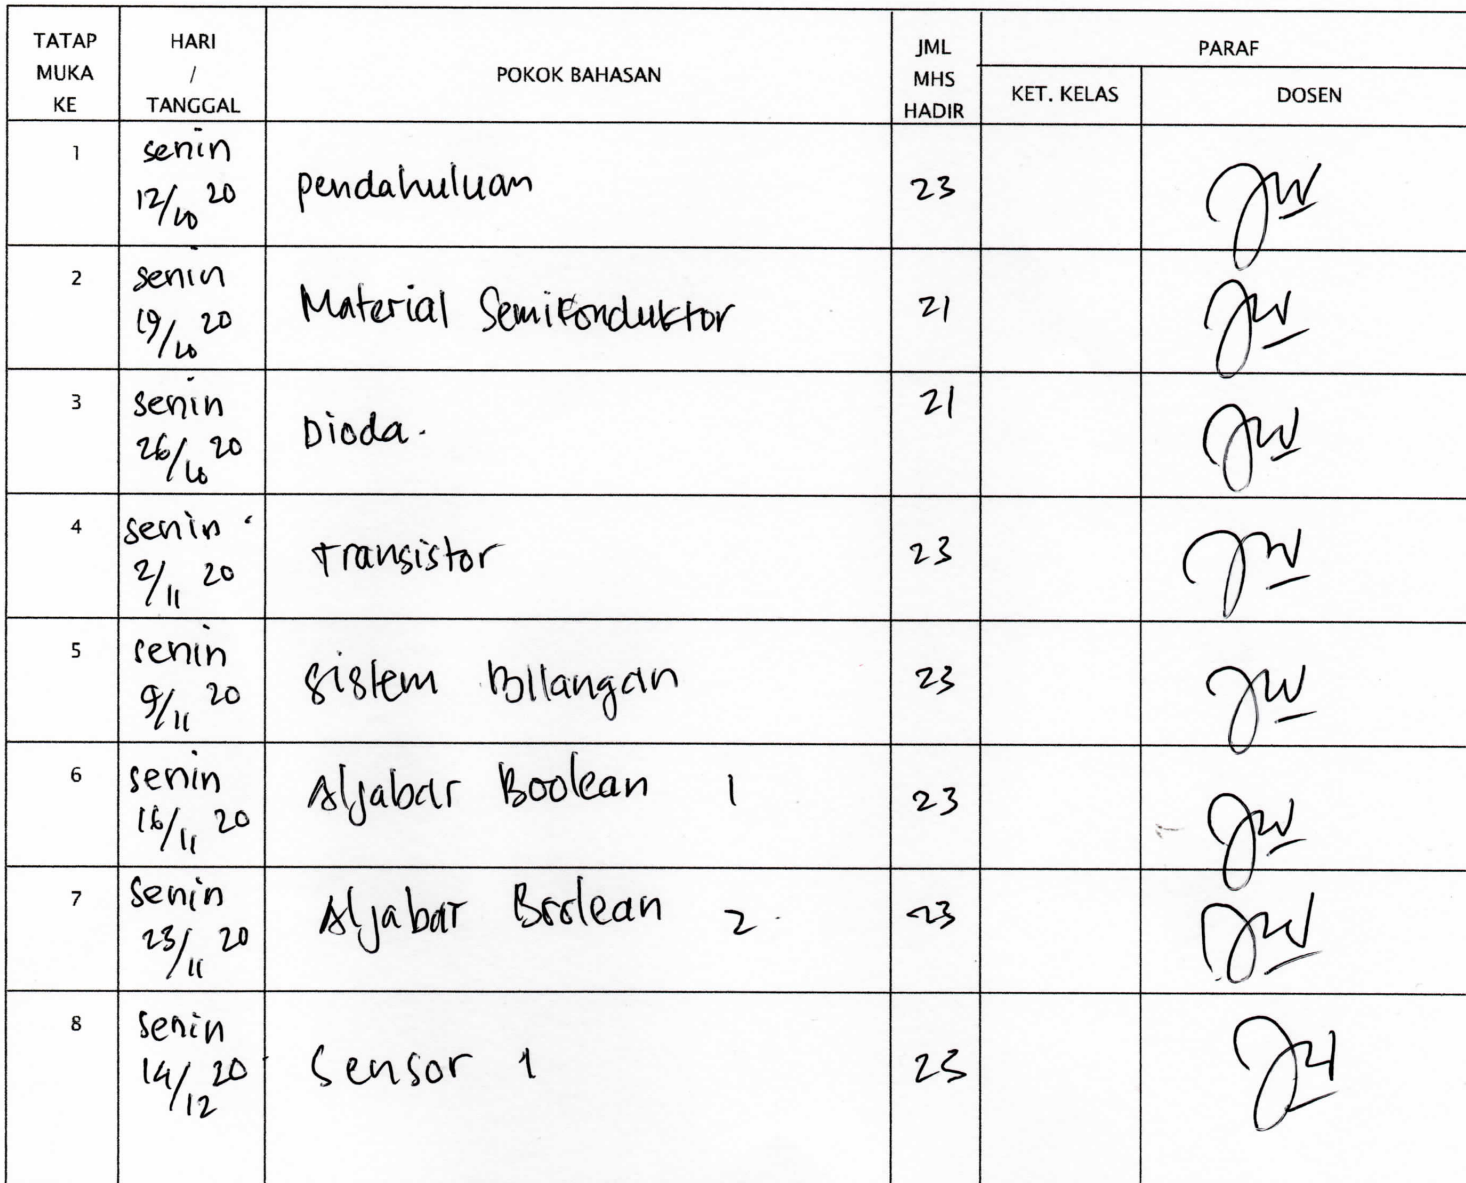 TATAP MUKA KE
HARI / TANGGAL
POKOK BAHASAN
JML MHS HADIR
PARAF
KET. KELAS
DOSEN
1
senin
12/10 20
pendahuluan
23
2
senin
19/10 20
Material Semikonduktor
21
3
senin
26/10 20
Dioda.
21
4
senin
2/11 20
Transistor
23
5
senin
9/11 20
Sistem Bilangan
23
6
senin
16/11 20
Aljabar Boolean 1
23
7
senin
23/11 20
Aljabar Boolean 2
23
8
senin
14/12 20
Sensor 1
23